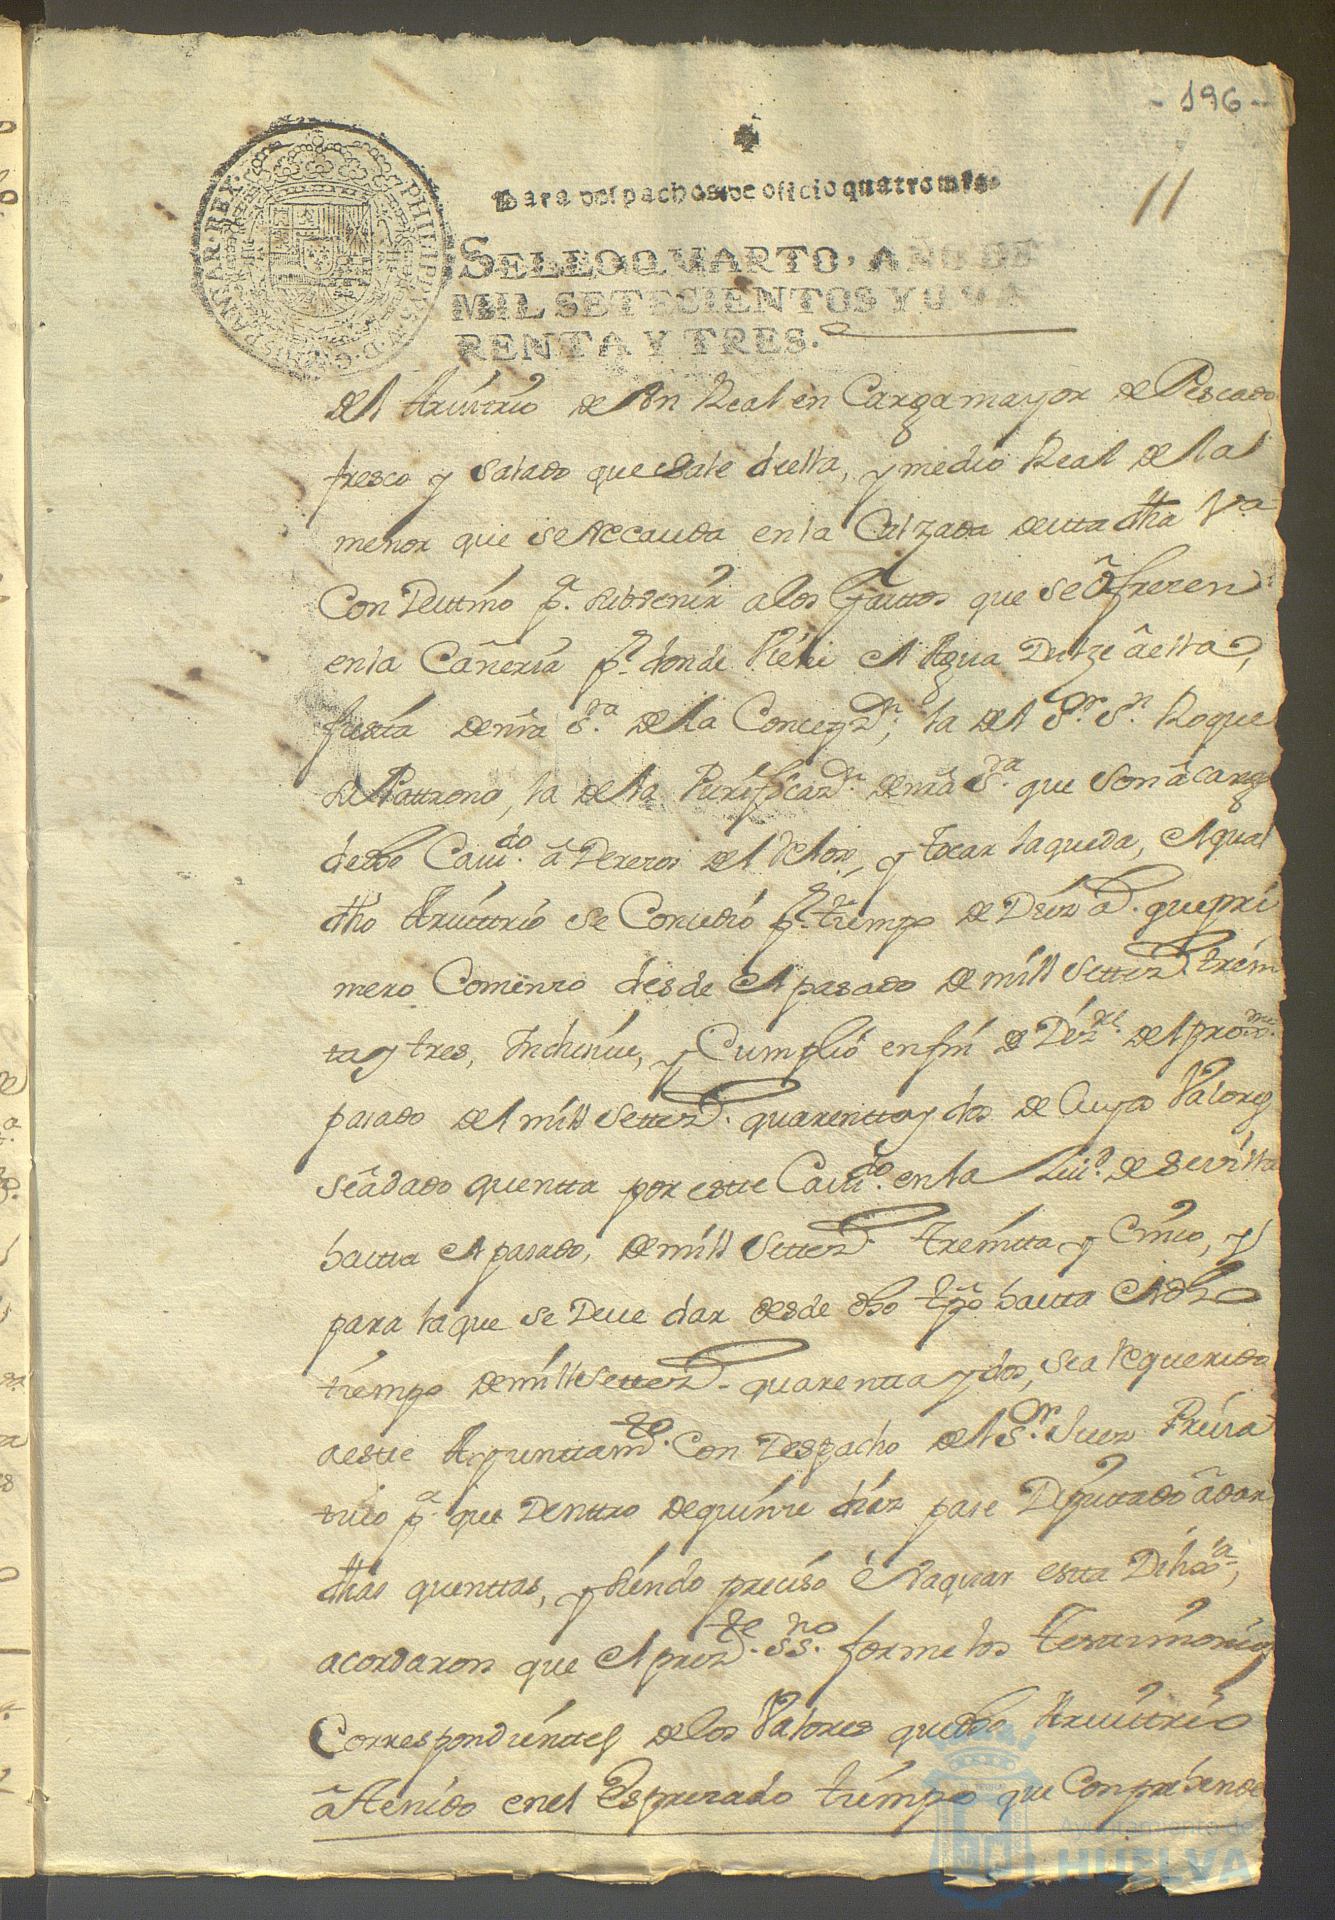 - 196 -
11
Para despachos de oficio quatro mrs.
SELLO QVARTO, AÑO DE
MIL SETECIENTOS Y QVA
RENTA Y TRES.
PHILIPPVS V D G HISPANIAR REX
del Arvitrio de Un Real en Carga mayor de Pescado
fresco y salado que sale de ella, y medio Real de la
menor que se Reccauda en la Calzada de esta dha Va
Con Destino pa. subvenir a los Gastos que se ôfrezen
en la Cañeria pr. donde Viene el Agua Dulze â ella,
fiesta de nra Sra. de la Concepzn, la del Sr. Sn. Roque
su Pattrono, la de la Purificazn. de nra Sra. que son â cargo
de dho Cavdo. â Derezos del Relox, y tocar la queda, el qual
dho Arvittrio se Concedió pr. tiempo de Diez ad. que pri
mero Comenzo desde el pasado de mill settezd. trein
ta y tres, Inclusive, y Cumplió en fin de Dizre. del proxmo.
pasado del mill settezd. quarentta y dos de Cuyos Valores
se â dado quentta por este Cavdo. en la Ziud. de Sevilla
hasta el pasado, de mill settezd. treintta y Cinco, y
para la que se Deve dar desde dho tpo hasta el dho
tiempo de mill settezd. quarentta y dos, sea Requerido
a este Ayunttamto. Con Despacho del Sr. Juez Priva
tivo pa. que Denttro de quinze diaz pase Diputado â dar
dhas quenttas, y siendo preciso êvaquar estta Dilixa,
acordaron que el preztte. ssno. forme los Testtimonios
Correspondienttes de los Valores que dho Arvittrio
â ttenido en el Espresado tiempo que Comprehende
Ayuntamiento de
HUELVA